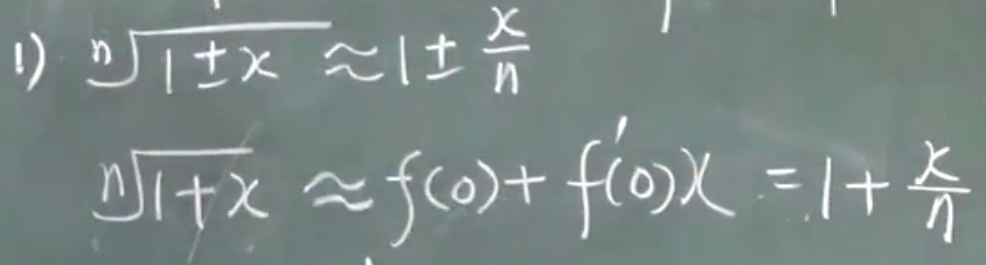 1) ⁿ√(1±x) ≈ 1 ± x/n
ⁿ√(1+x) ≈ f(0) + f'(0)x = 1 + x/n